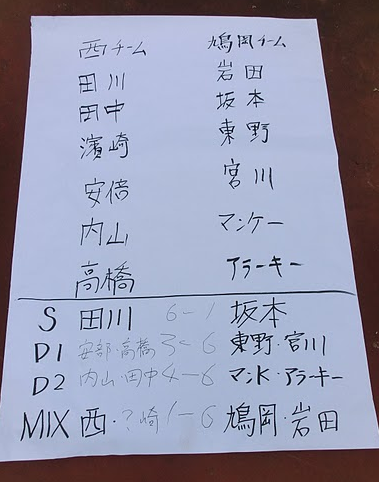 西チーム 鳩岡チーム
田川 岩田
田中 坂本
濱崎 東野
安倍 宮川
内山 マンケー
高橋 アラーキー
S 田川 6-1 坂本
D1 安部・高橋 3-6 東野・宮川
D2 内山・田中 4-6 マンK・アラーキー
MIX 西・?崎 1-6 鳩岡・岩田